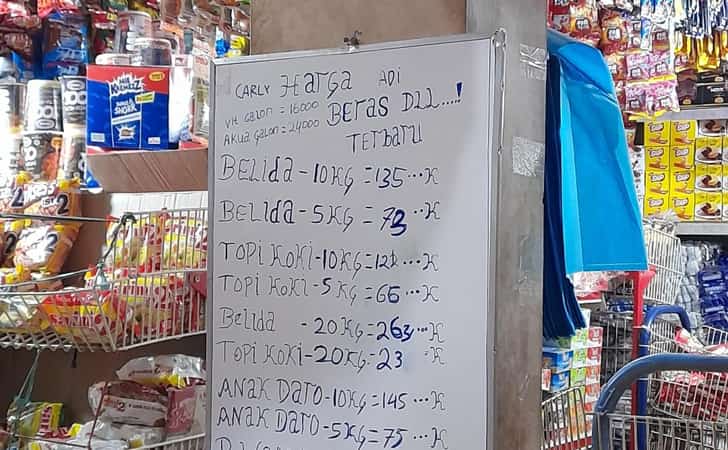 CARLY Harga ADI
VIT GALON = 16000
AKUA GALON = 24000
BERAS DLL.....!
TERBARU
BELIDA - 10KG = 135...K
BELIDA - 5KG = 73...K
TOPI KOKI - 10KG = ...K
TOPI KOKI - 5KG = 66...K
BELIDA - 20KG = 263...K
TOPI KOKI - 20KG - 23 K
ANAK DARO - 10KG = 145...K
ANAK DARO - 5KG = 75...K